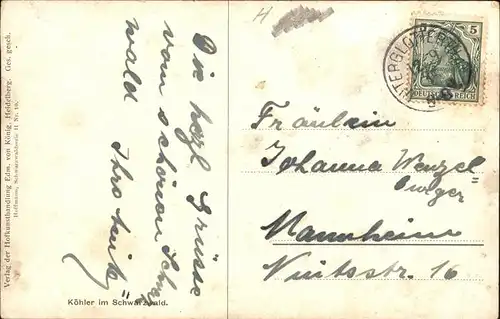 Verlag der Hofkunsthandlung Edm. von König, Heidelberg. Ges. gesch.
Hoffmann, Schwarzwaldserie II Nr. 10.
Die herzl Grüsse
vom schönen Schwarz
wald
Ihre
Köhler im Schwarzwald.
5
DEUTSCHES REICH
Fräulein
Johanna Wenzel
burger
Mannheim
Nuitsstr. 16